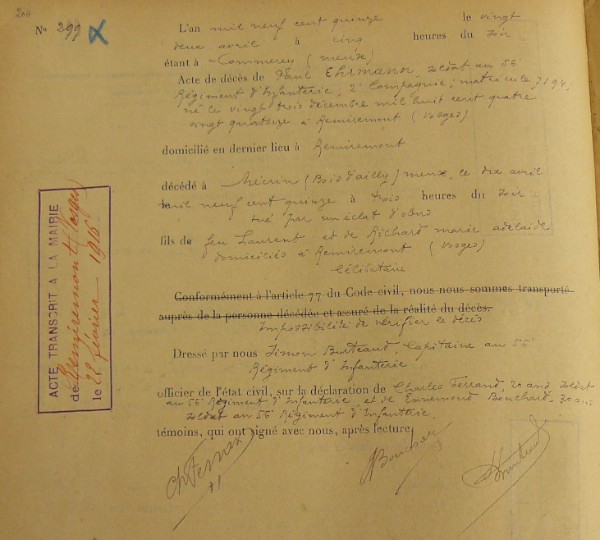 200
N° 299
L'an mil neuf cent quinze le vingt
deux avril à cinq heures du soir
étant à Commercy (meuse)
Acte de décès de Paul Ehrmann, soldat au 55e
Régiment d'Infanterie, 2e Compagnie; matricule 7194,
né le vingt trois décembre mil huit cent quatre
vingt quatorze à Remiremont (Vosges)
domicilié en dernier lieu à Remiremont
décédé à Mécrin (Bois d'ailly) meuse, le dix avril
mil neuf cent quinze à trois heures du soir
tué par un éclat d'obus
fils de feu Laurent et de Richard marie adelaïde
domiciliés à Remiremont (Vosges)
Célibataire
Conformément à l'article 77 du Code civil, nous nous sommes transporté
auprès de la personne décédée et assuré de la réalité du décès.
Impossibilité de vérifier le décès
Dressé par nous Simon Burteaud, Capitaine au 55e
Régiment d'Infanterie
officier de l'état civil, sur la déclaration de Charles Ferrand, 20 ans soldat
au 55e Régiment d'Infanterie et de Ennemond Bouchard, 30 ans
soldat au 55e Régiment d'Infanterie.
témoins, qui ont signé avec nous, après lecture
ACTE TRANSCRIT A LA MAIRIE
de Remiremont (Vosges)
le 22 février 1916